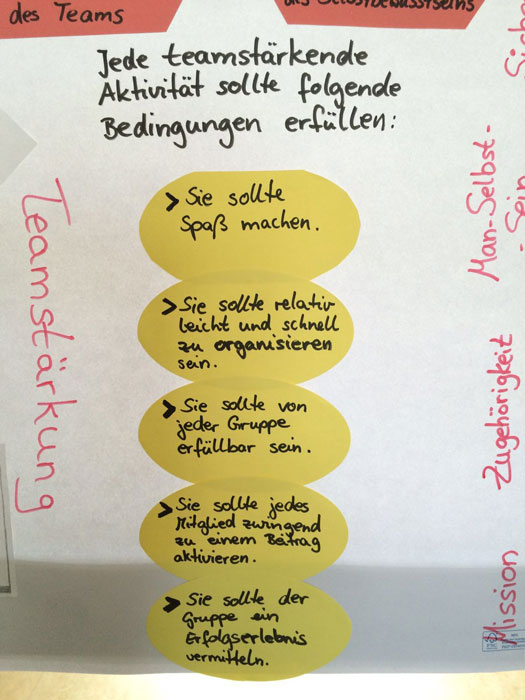 des Teams
des Selbstbewusstseins
Jede teamstärkende
Aktivität sollte folgende
Bedingungen erfüllen:
Teamstärkung
> Sie sollte
Spaß machen.
> Sie sollte relativ
leicht und schnell
zu organisieren
sein.
> Sie sollte von
jeder Gruppe
erfüllbar sein.
> Sie sollte jedes
Mitglied zwingend
zu einem Beitrag
aktivieren.
> Sie sollte der
Gruppe ein
Erfolgserlebnis
vermitteln.
Man-Selbst-
-Sein
Zugehörigkeit
Mission